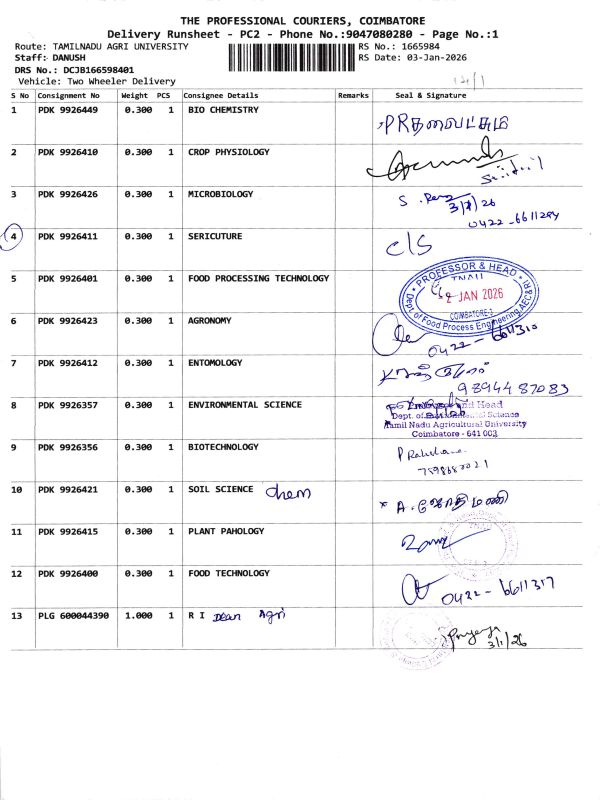 THE PROFESSIONAL COURIERS, COIMBATORE
Delivery Runsheet - PC2 - Phone No.:9047080280 - Page No.:1
Route: TAMILNADU AGRI UNIVERSITY RS No.: 1665984
Staff: DANUSH RS Date: 03-Jan-2026
DRS No.: DCJB166598401
Vehicle: Two Wheeler Delivery
S No Consignment No Weight PCS Consignee Details Remarks Seal & Signature
1 PDK 9926449 0.300 1 BIO CHEMISTRY
2 PDK 9926410 0.300 1 CROP PHYSIOLOGY
3 PDK 9926426 0.300 1 MICROBIOLOGY
0422-6611294
4 PDK 9926411 0.300 1 SERICUTURE C/S
5 PDK 9926401 0.300 1 FOOD PROCESSING TECHNOLOGY
PROFESSOR & HEAD
TNAU
2 JAN 2026
COIMBATORE-3
Dept of Food Process Engineering, AEC&RI
6 PDK 9926423 0.300 1 AGRONOMY
0422-6611310
7 PDK 9926412 0.300 1 ENTOMOLOGY
9894487083
8 PDK 9926357 0.300 1 ENVIRONMENTAL SCIENCE
and Head
Dept. of Environmental Science
Tamil Nadu Agricultural University
Coimbatore - 641 003
9 PDK 9926356 0.300 1 BIOTECHNOLOGY
7598687021
10 PDK 9926421 0.300 1 SOIL SCIENCE chem
A. ஜோதிமணி
11 PDK 9926415 0.300 1 PLANT PAHOLOGY
12 PDK 9926400 0.300 1 FOOD TECHNOLOGY
0422-6611317
13 PLG 600044390 1.000 1 R I Dean Agri
3/1/26